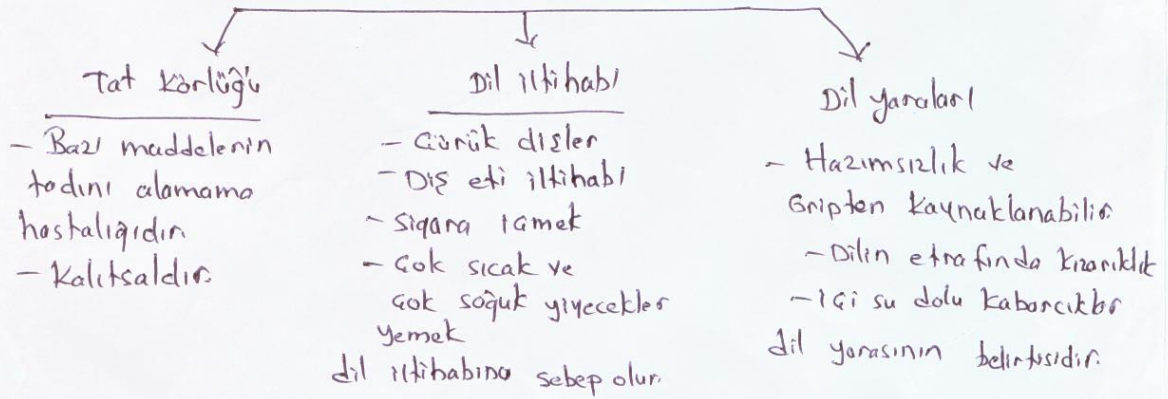 Tat Körlüğü
- Bazı maddelerin
tadını alamama
hastalığıdır.
- Kalıtsaldır.
Dil iltihabı
- Çürük dişler
- Diş eti iltihabı
- Sigara içmek
- Çok sıcak ve
çok soğuk yiyecekler
yemek
dil iltihabına sebep olur.
Dil yaraları
- Hazımsızlık ve
Gripten kaynaklanabilir.
- Dilin etrafında kızarıklık
- içi su dolu kabarcıklar
dil yarasının belirtisidir.